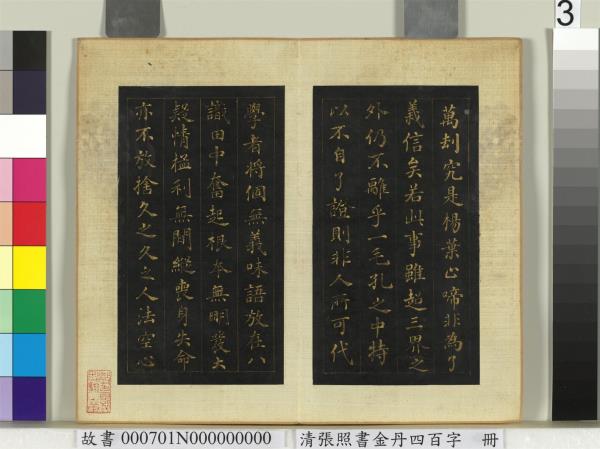 萬刦究是楊葉止啼非為了
義信矣若此事雖超三界之
外仍不離乎一毛孔之中特
以不自了證則非人所可代
學者將個無義味語放在八
識田中奮起根本無明發大
疑情猛利無間縱喪身失命
亦不放捨久之久之人法空心
3
故書 000701N000000000 清張照書金丹四百字 冊